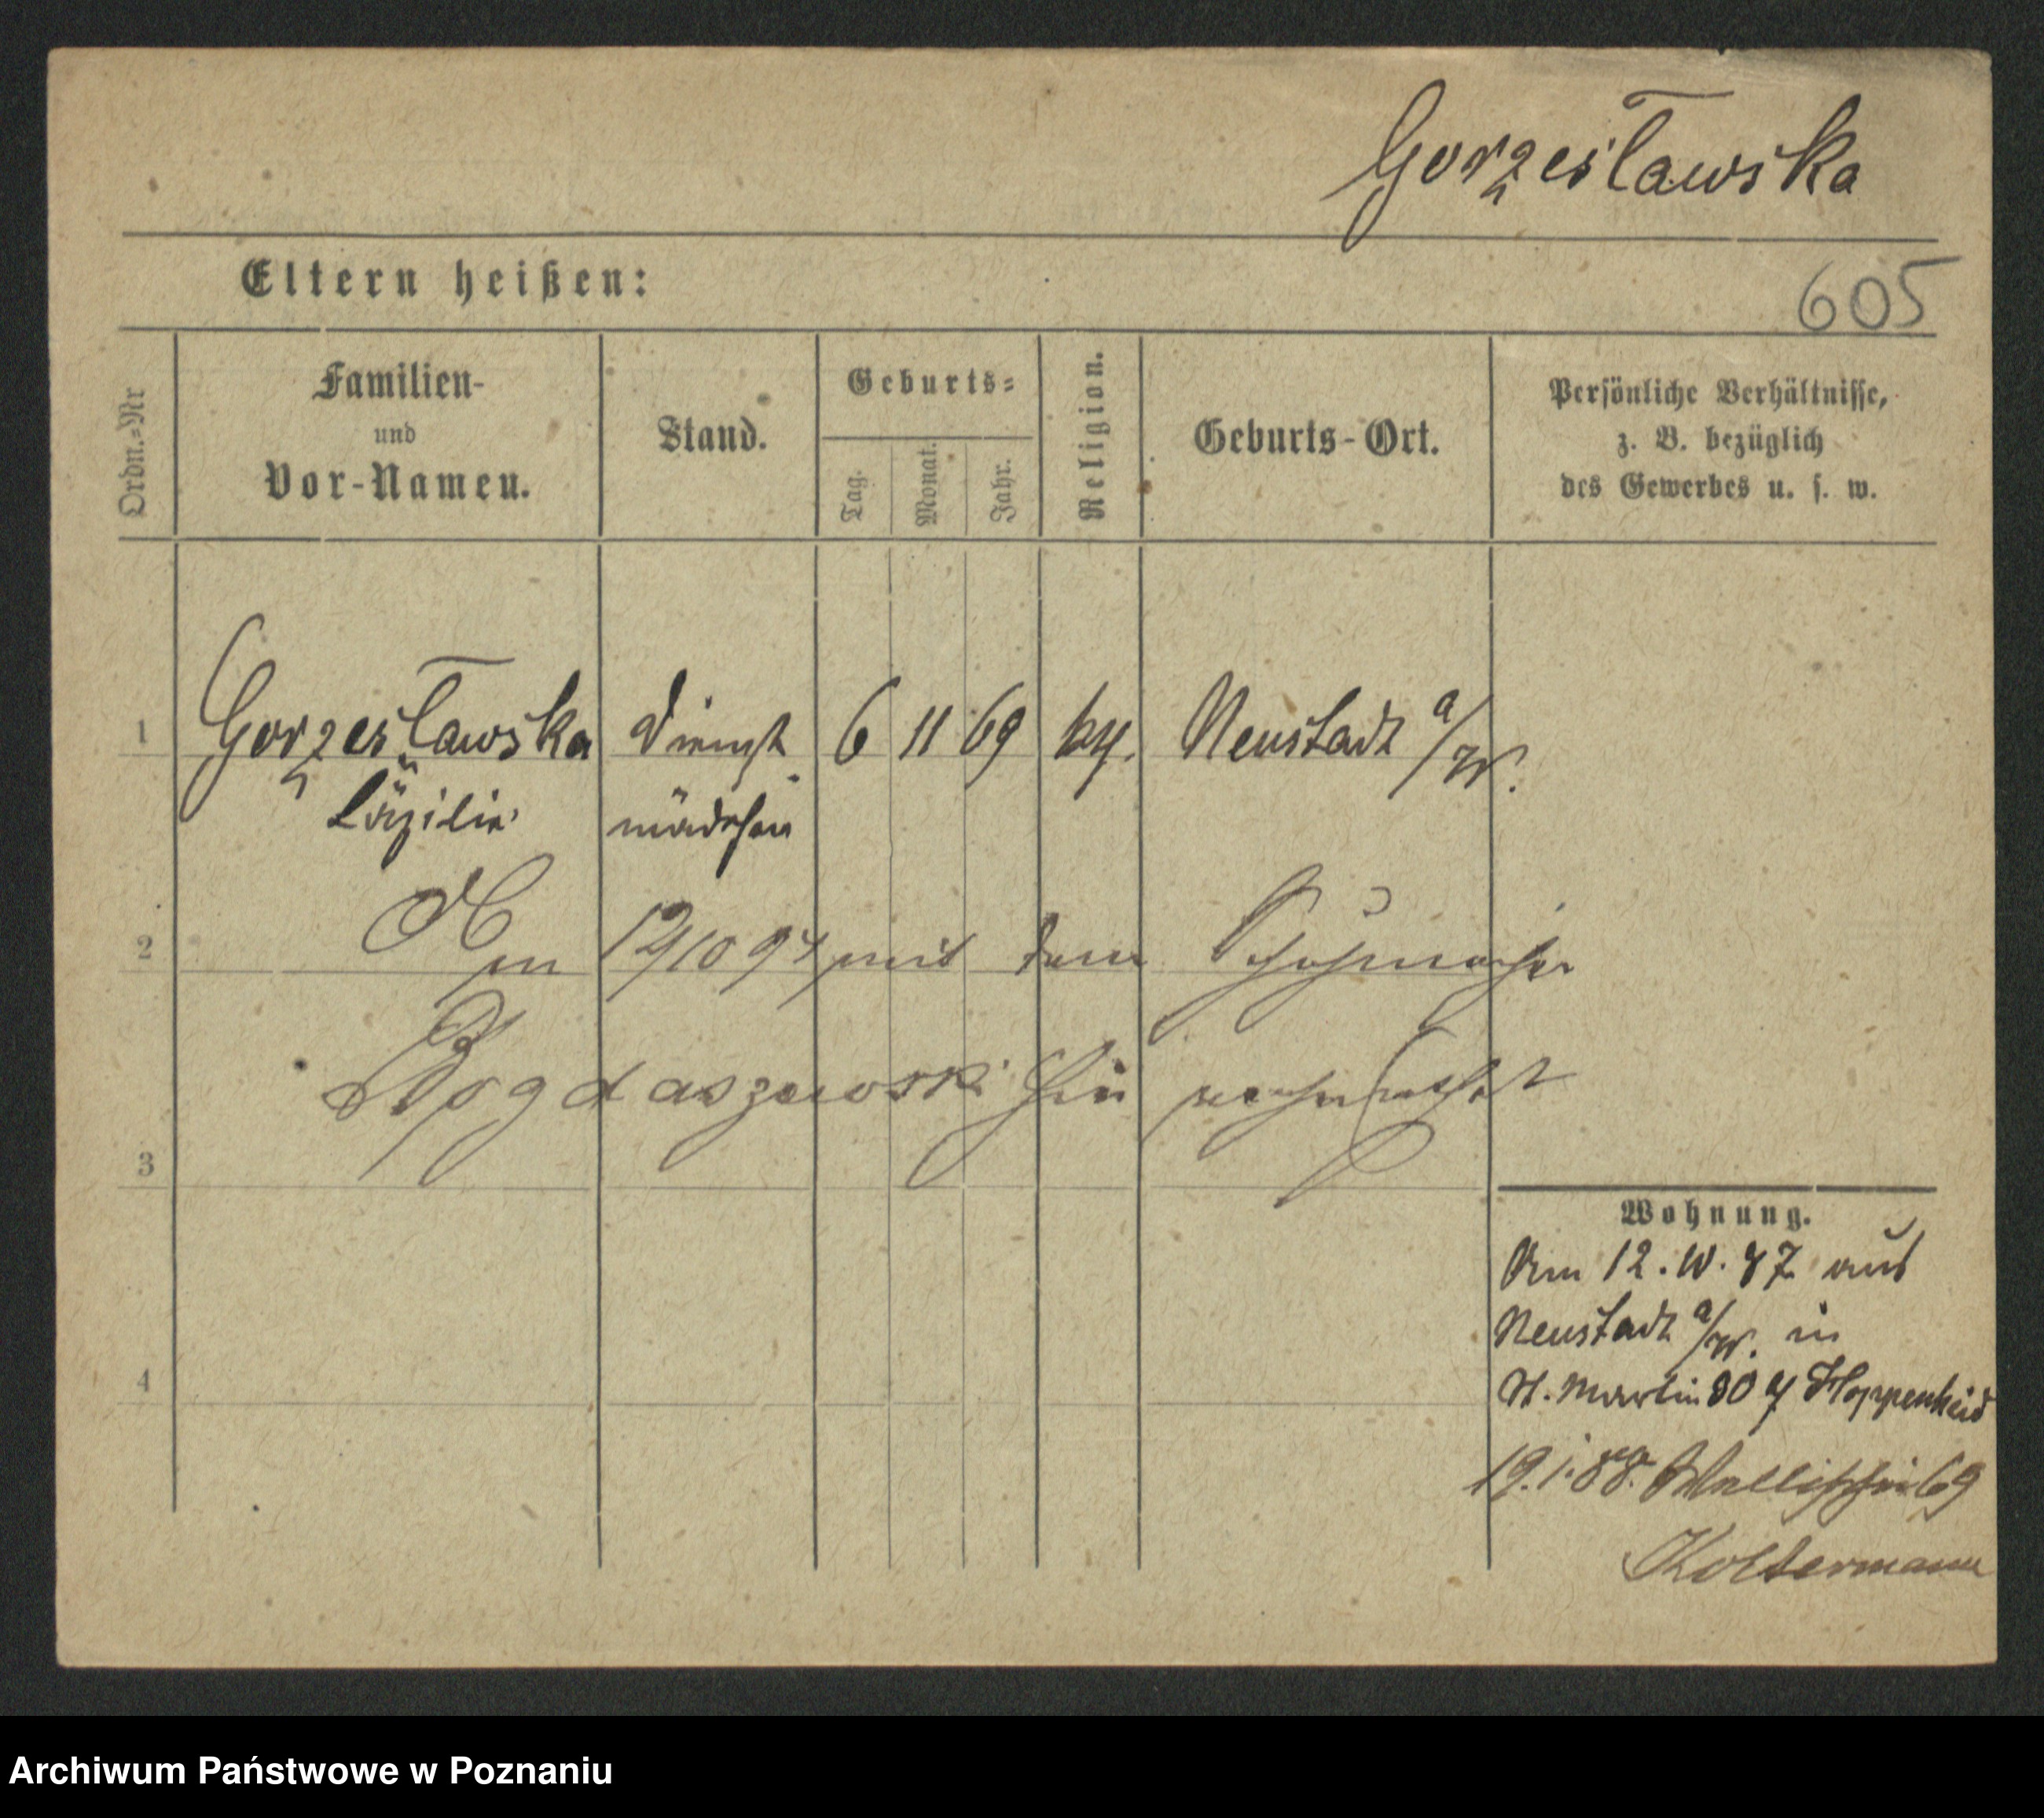 Gorzesławska
605
Eltern heißen:
Ordn.=Nr
Familien-
und
Vor-Namen.
Stand.
Geburts=
Tag.
Monat.
Jahr.
Religion.
Geburts-Ort.
Persönliche Verhältnisse,
z. B. bezüglich
des Gewerbes u. s. w.
1 Gorzesławska Dienst 6 11 69 Neustadt a/W.
Cäzilie mädchen
2 Am 12/10 97 mit dem Schuhmacher
Bogdaszewski hier
3
Wohnung.
Am 12. 87 aus
Neustadt a/W. in
St. Martin Hoppenheid
4
19.1.88. Wallischei 69
Koltermann
Archiwum Państwowe w Poznaniu